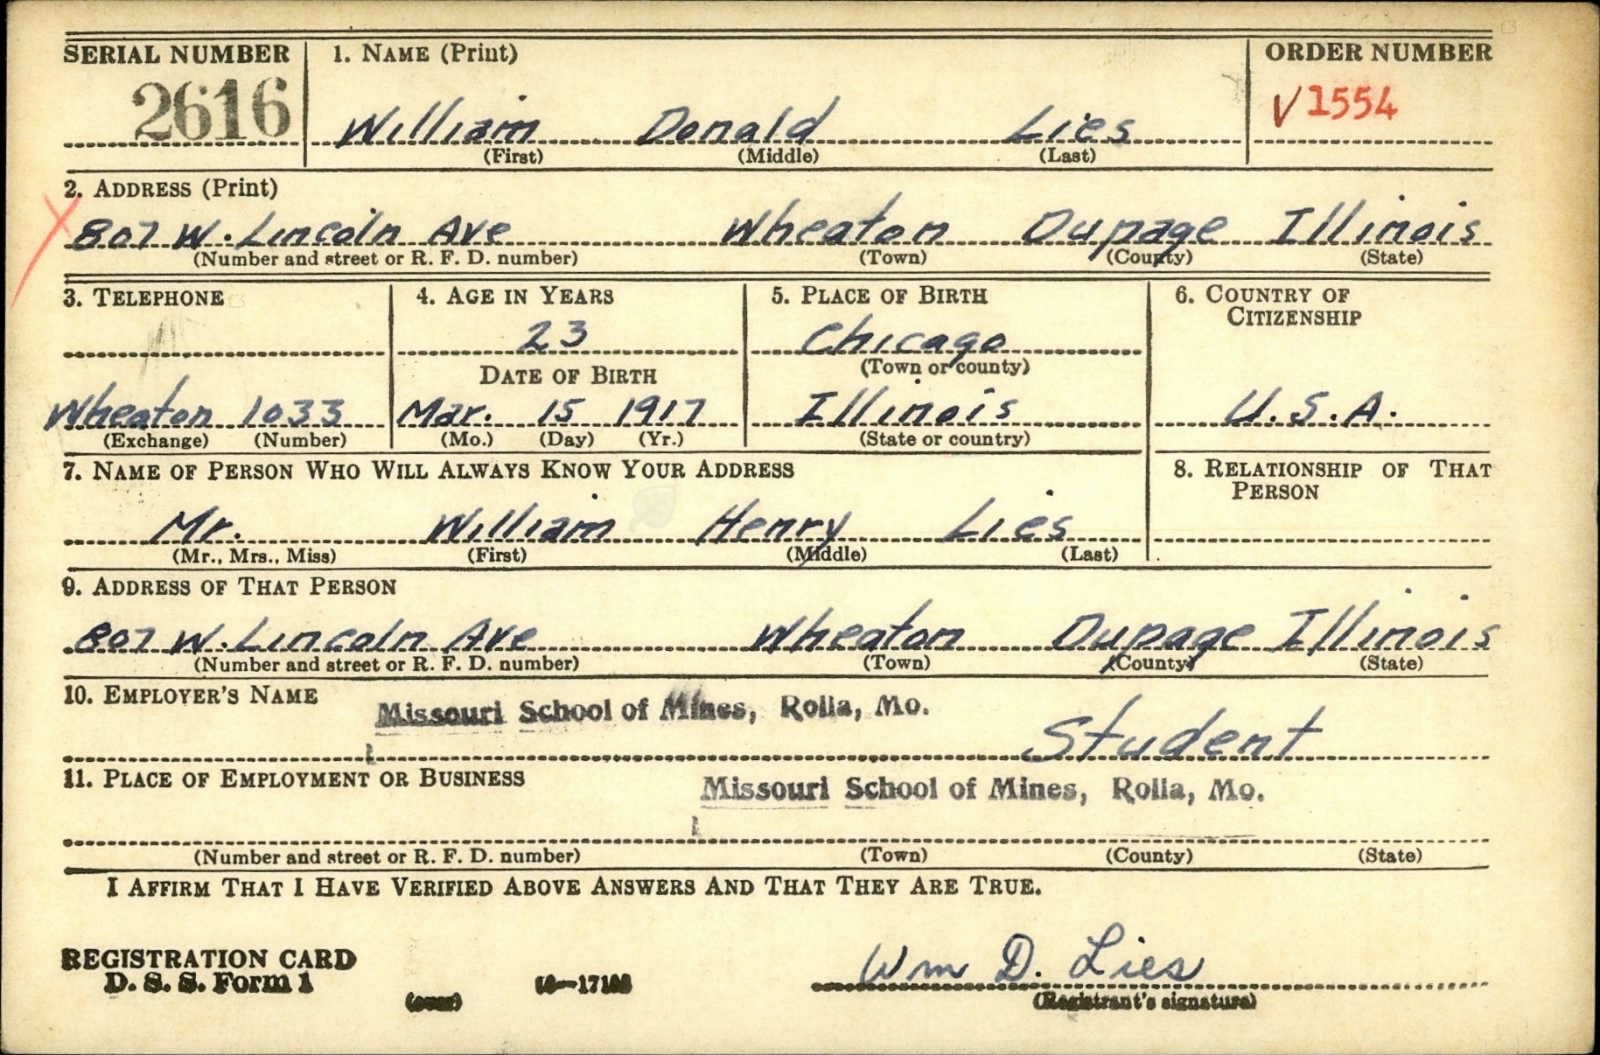 SERIAL NUMBER 1. NAME (Print) ORDER NUMBER
2616 William Donald Lies √1554
(First) (Middle) (Last)
2. ADDRESS (Print)
807 W. Lincoln Ave Wheaton Dupage Illinois
(Number and street or R. F. D. number) (Town) (County) (State)
3. TELEPHONE 4. AGE IN YEARS 5. PLACE OF BIRTH 6. COUNTRY OF
CITIZENSHIP
23 Chicago
(Town or county)
DATE OF BIRTH
Wheaton 1033 Mar. 15 1917 Illinois U.S.A.
(Exchange) (Number) (Mo.) (Day) (Yr.) (State or country)
7. NAME OF PERSON WHO WILL ALWAYS KNOW YOUR ADDRESS 8. RELATIONSHIP OF THAT
PERSON
Mr. William Henry Lies
(Mr., Mrs., Miss) (First) (Middle) (Last)
9. ADDRESS OF THAT PERSON
807 W. Lincoln Ave Wheaton Dupage Illinois
(Number and street or R. F. D. number) (Town) (County) (State)
10. EMPLOYER'S NAME
Missouri School of Mines, Rolla, Mo.
Student
11. PLACE OF EMPLOYMENT OR BUSINESS
Missouri School of Mines, Rolla, Mo.
(Number and street or R. F. D. number) (Town) (County) (State)
I AFFIRM THAT I HAVE VERIFIED ABOVE ANSWERS AND THAT THEY ARE TRUE.
REGISTRATION CARD Wm D. Lies
D. S. S. Form 1
(over) (Registrant's signature)